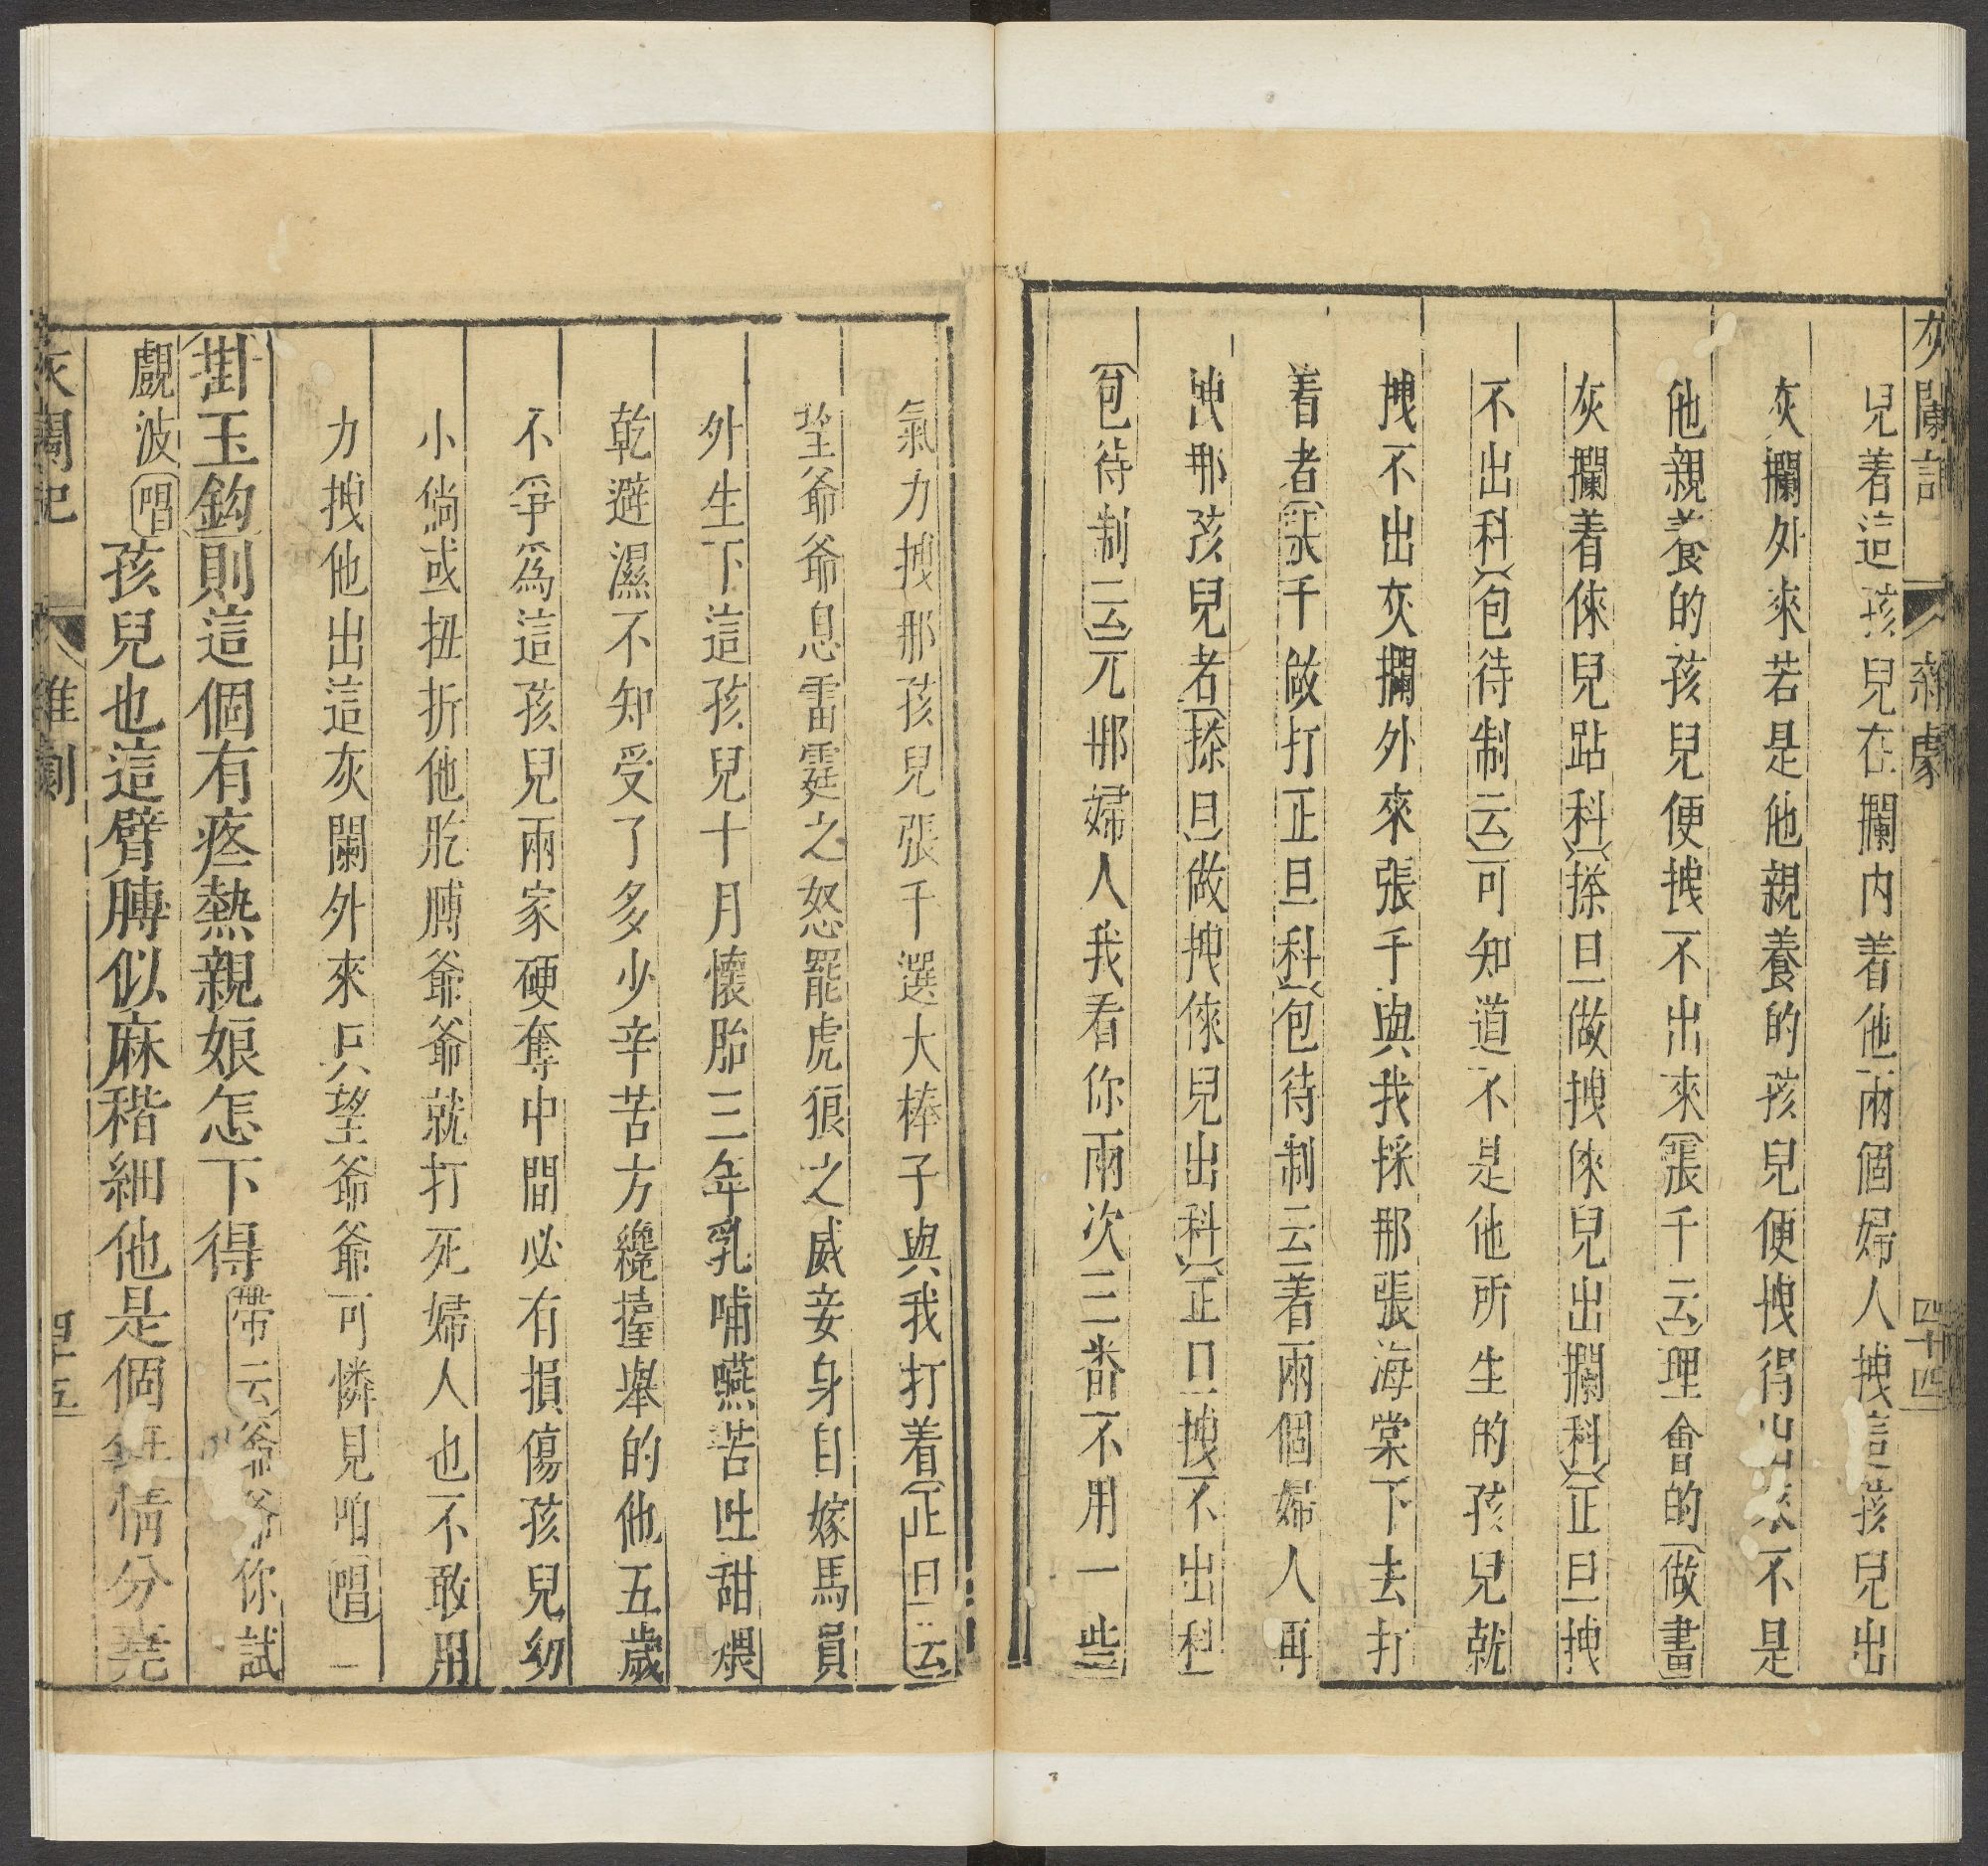 灰闌記 雜劇 四十四
兒着這孩兒在攔內着他兩個婦人拽這孩兒出
灰攔外來若是他親養的孩兒便拽得出來不是
他親養的孩兒便拽不出來(張千云)理會的(做畫
灰攔着倈兒跕科)(搽旦做拽倈兒出攔科)(正旦拽
不出科)(包待制云)可知道不是他所生的孩兒就
拽不出灰攔外來張千與我採那張海棠下去打
着者(張千做打正旦科)(包待制云)着兩個婦人再
拽那孩兒者(搽旦做拽倈兒出科)(正旦拽不出科)
(包待制云)兀那婦人我看你兩次三番不用一些
氣力拽那孩兒張千選大棒子與我打着(正旦云)
望爺爺息雷霆之怒罷虎狼之威妾身自嫁馬員
外生下這孩兒十月懷胎三年乳哺嚥苦吐甜煨
乾避濕不知受了多少辛苦方纔擡舉的他五歲
不爭爲這孩兒兩家硬奪中間必有損傷孩兒幼
小倘或扭折他肐膊爺爺就打死婦人也不敢用
力拽他出這灰闌外來只望爺爺可憐見咱(唱)
掛玉鈎則這個有疼熱親娘怎下得(帶云)爺爺你試
覷波(唱)孩兒也這臂膊似麻稭細他是個 情分堯
灰闌記 雜劇 四十五